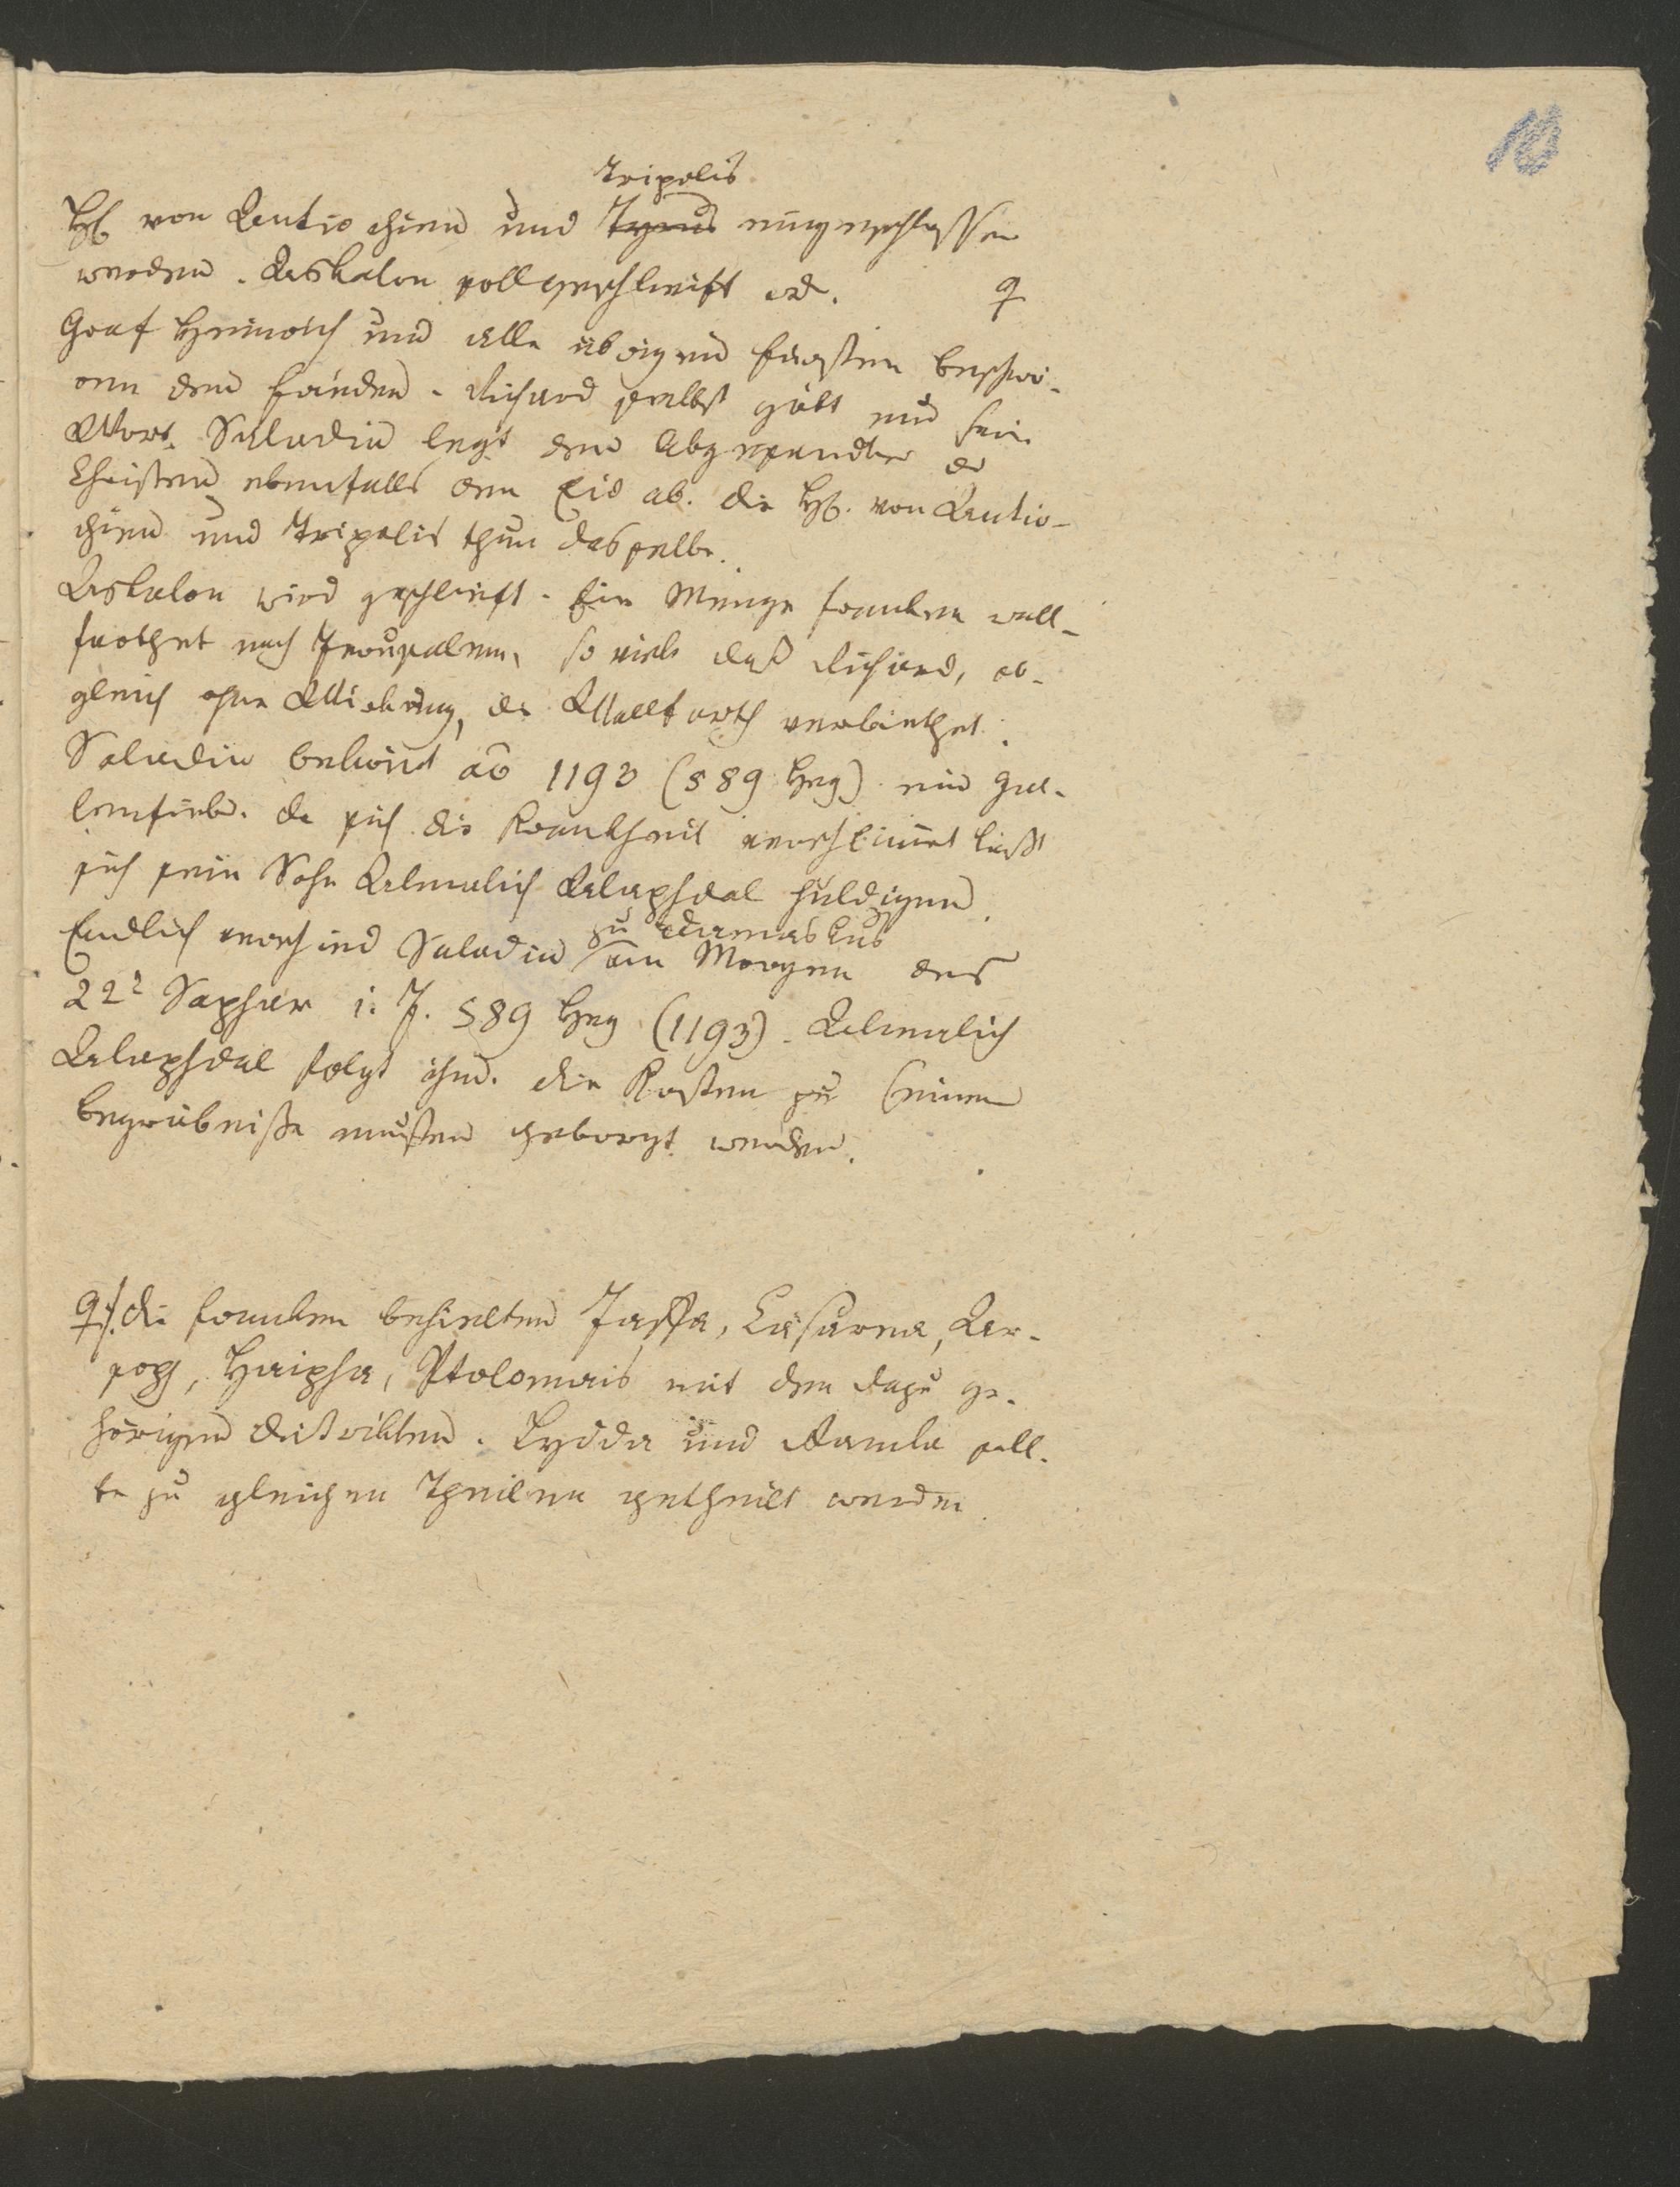 10
Tripolis
H. von Antiochien und Tyrus eingeschlossen
werden. Askalon soll geschleift wd. q
Graf Heinrich und alle übrigen Fürsten beschwö-
ren den Frieden. Richard selbst gibt nur sein
Wort. Saladin legt den Abgesandten der
Christen ebenfalls den Eid ab. die H. von Antio-
chien und Tripolis thun dasselbe.
Askalon wird geschleift. Eine Menge Franken wall-
farthet nach Jerusalem, so viele daß Richard, ob-
gleich ohne Wirkung, die Wallfarth verbiethet.
Saladin bekömt aō 1193 (589 Heg) ein Gal-
lenfieber. da sich die Krankheit verschlimert läßt
sich sein Sohn Almalich Alaphdal huldigen.
zu Damaskus
Endlich verschied Saladin am Morgen des
22t Saphar i. J. 589 Heg (1193). Almalich
Alaphdal folgt ihm. die Kosten zu seinem
Begräbnisse mußten geborgt werden.
q/. die Franken behielten Jaffa, Cäsarea, Ar-
soph, Haipha, Ptolomais mit den dazu ge-
hörigen Distrikten. Lydda und Ramla soll-
te zu gleichen Theilen getheilt werden.